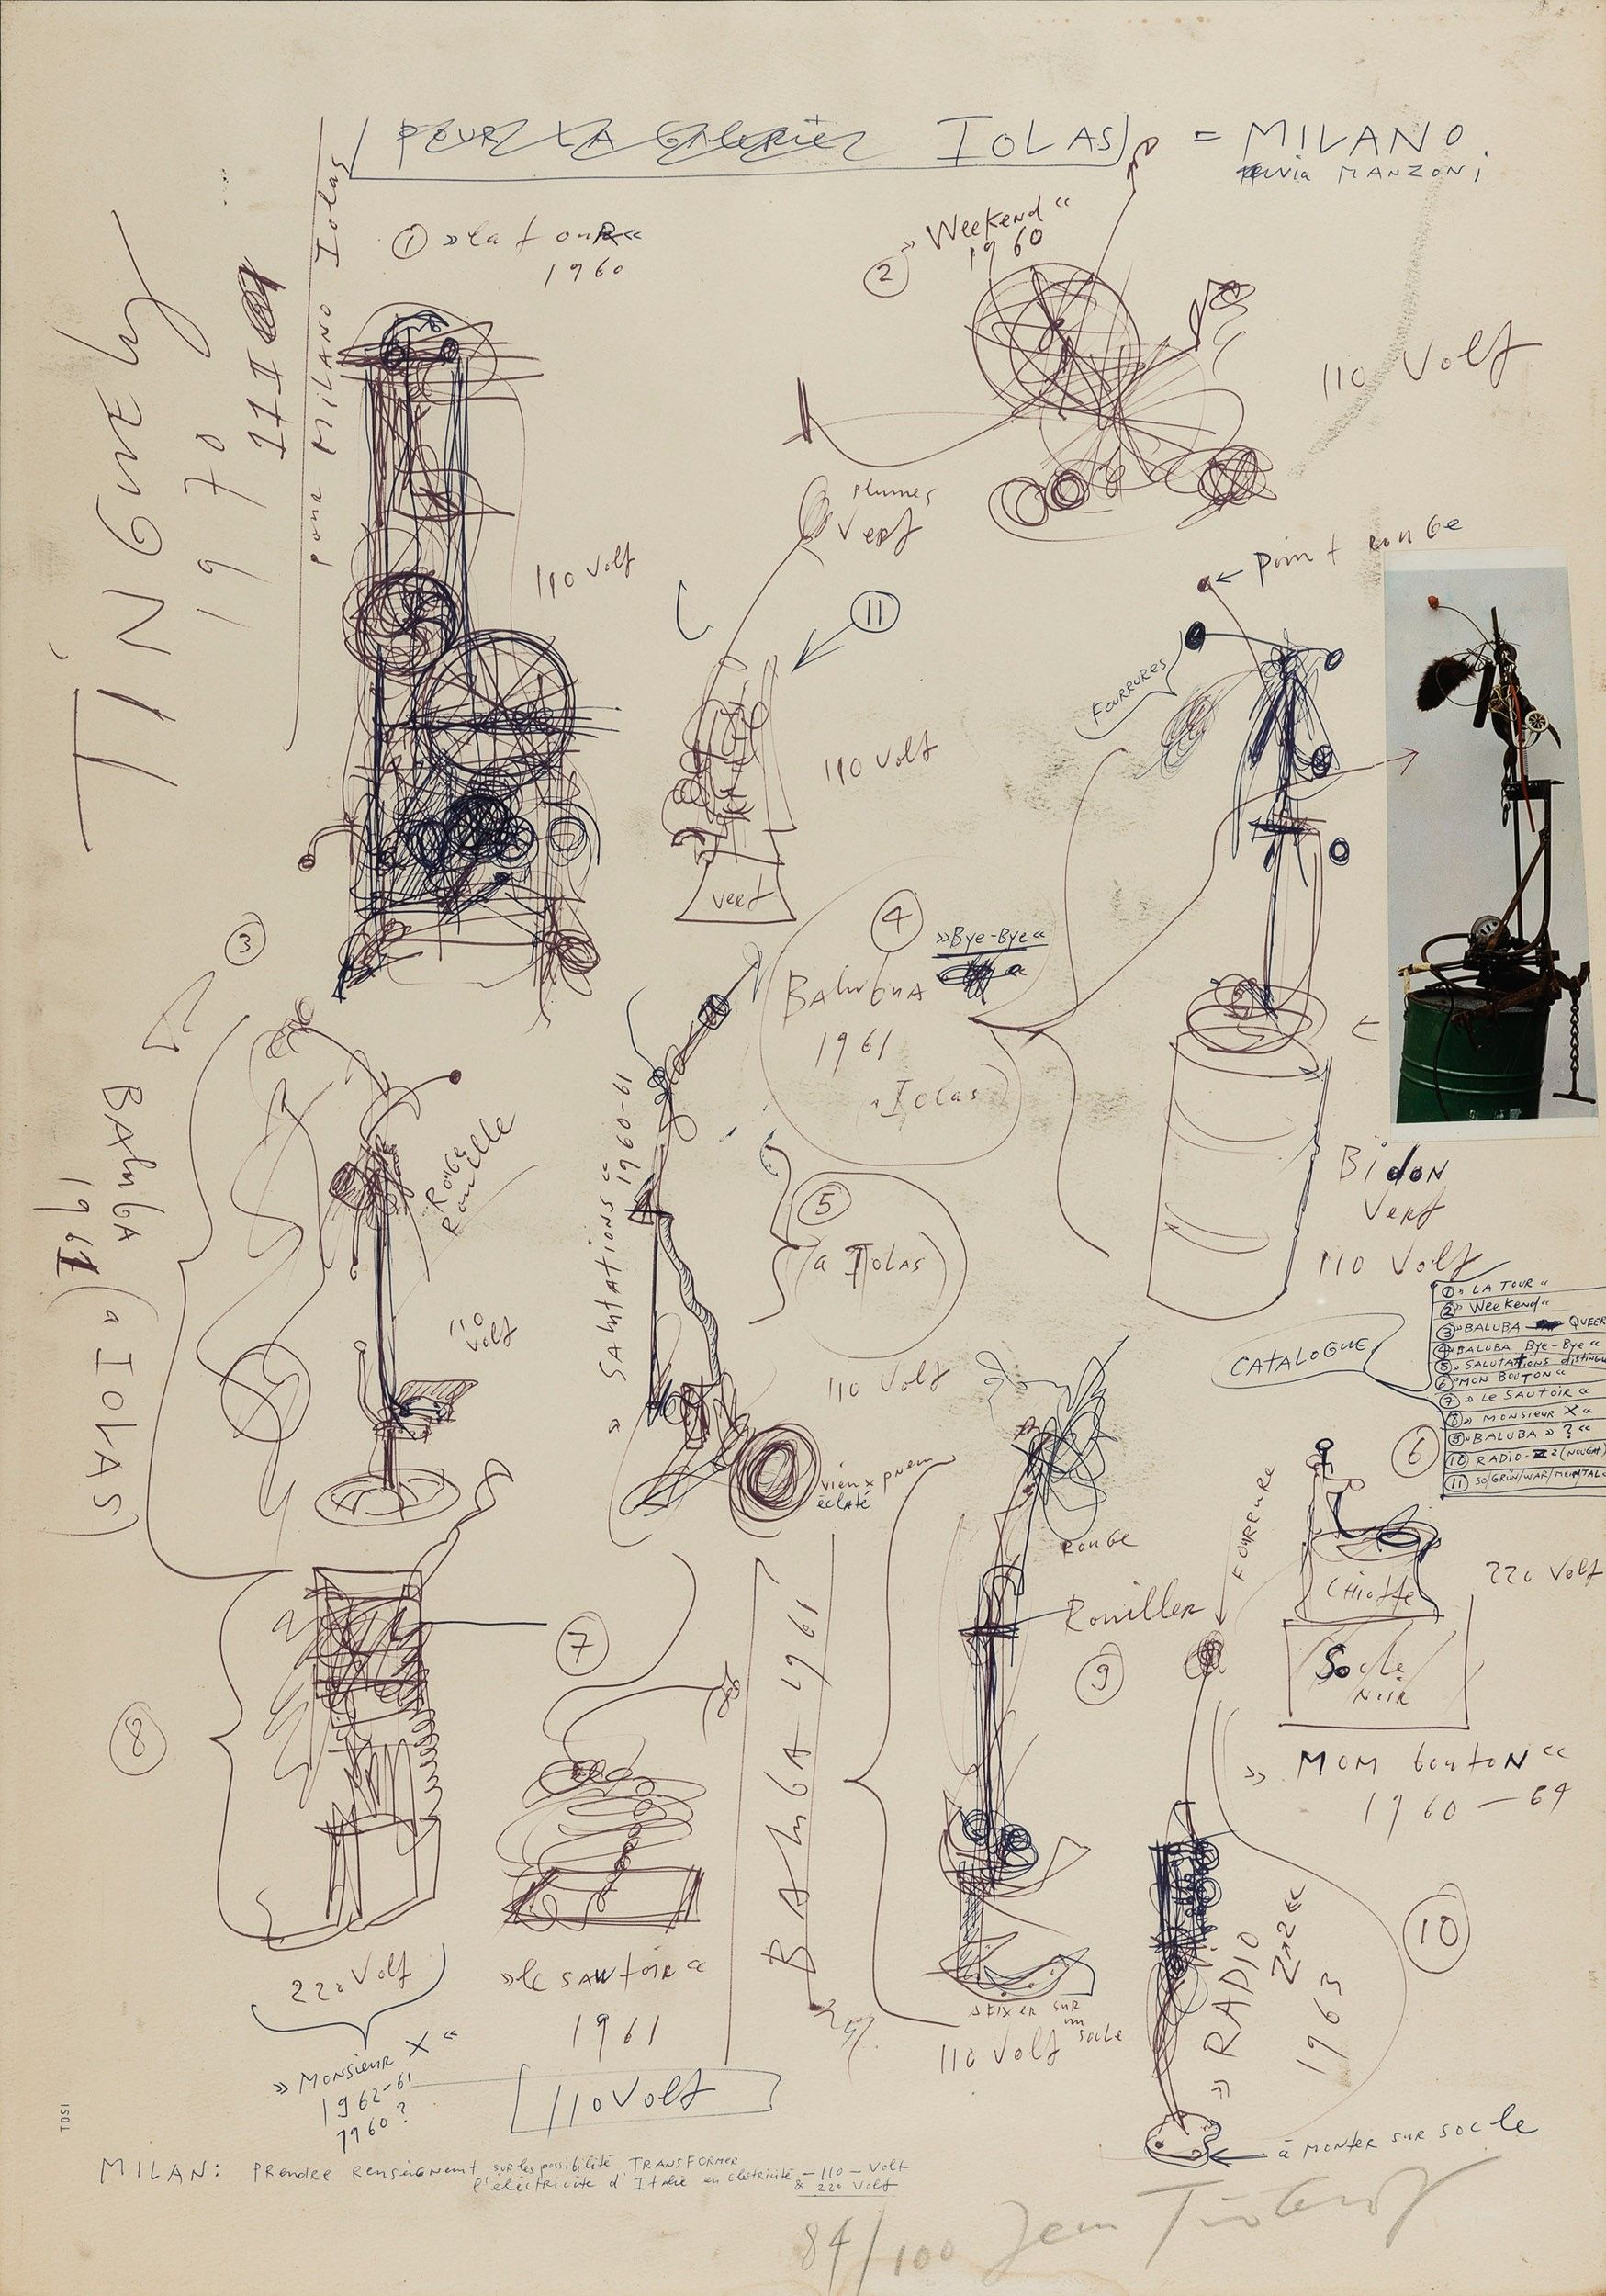 POUR LA GALERIE IOLAS = MILANO
via MANZONI
TiNGuely
1970
pour MILANO Iolas
① »la touR«
1960
② »Weekend«
1960
110 Volt
plumes
Vert
110 Volt
⑪
point rouge
FOURRURES
110 Volt
vert
③
④
»Bye-Bye«
BAlubA
1961
Iolas
BAlubA
1961 (a IOLAS)
Rouge
Rouille
110
Volt
»SAlutAtions«
1960-61
⑤
(a IOLAS)
110 Volt
vieux pneu
éclaté
BidoN
Vert
110 Volt
CATALOGUE
① »LA TOUR«
② »Weekend«
③ »BALUBA QUEER
④ »BALUBA Bye-Bye«
⑤ »SALUTATIONS disting
⑥ »MON BOUTON«
⑦ »LE SAUTOIR«
⑧ »MONSIEUR X«
⑨ »BALUBA »?«
⑩ RADIO-
⑪ SO/GRÜN/WAR/MEIN TAL
⑥
220 Volt
Socle
NoiR
»MOM bouton«
1960-64
FOURRURE
Rouge
Rouiller
⑨
BAlubA 1961
A FIXER SUR
un
socle
110 Volt
⑦
»le sautoir«
1961
110 Volt
⑧
220 Volt
»MONSIEUR X«
1962-61
1960?
⑩
»RADIO
1963
à MONTER SUR SOCLE
TOSI
MILAN: PRendre RenseiGnement sur les possibilité TRANSFORMER
l'éléctricite d'Italie en életricité -110- Volt
& 220 Volt
84/100 Jean Tinguely